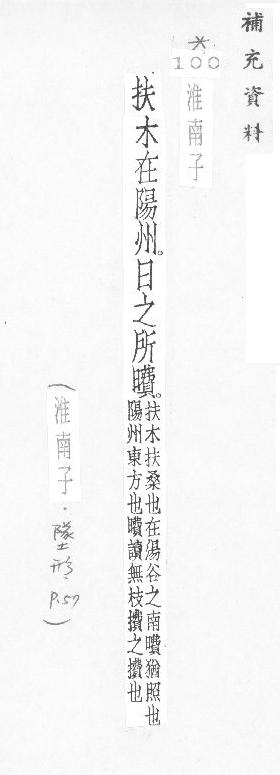 補充資料
*
100
淮南子
扶木在陽州。日之所曊。
扶木扶桑也在湯谷之南曊猶照也
陽州東方也曊讀無枝攢之攢也
(淮南子·墬形 P.57)